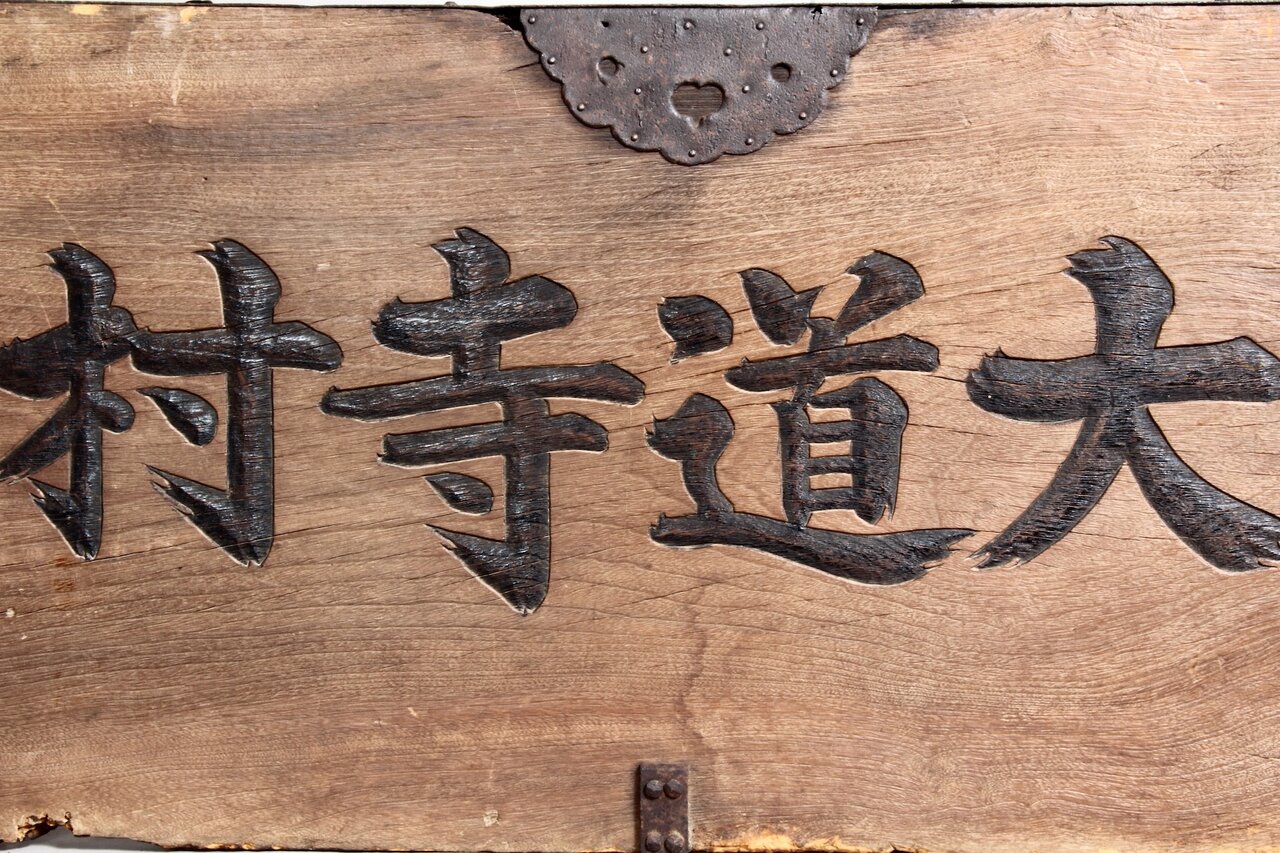 大道寺村